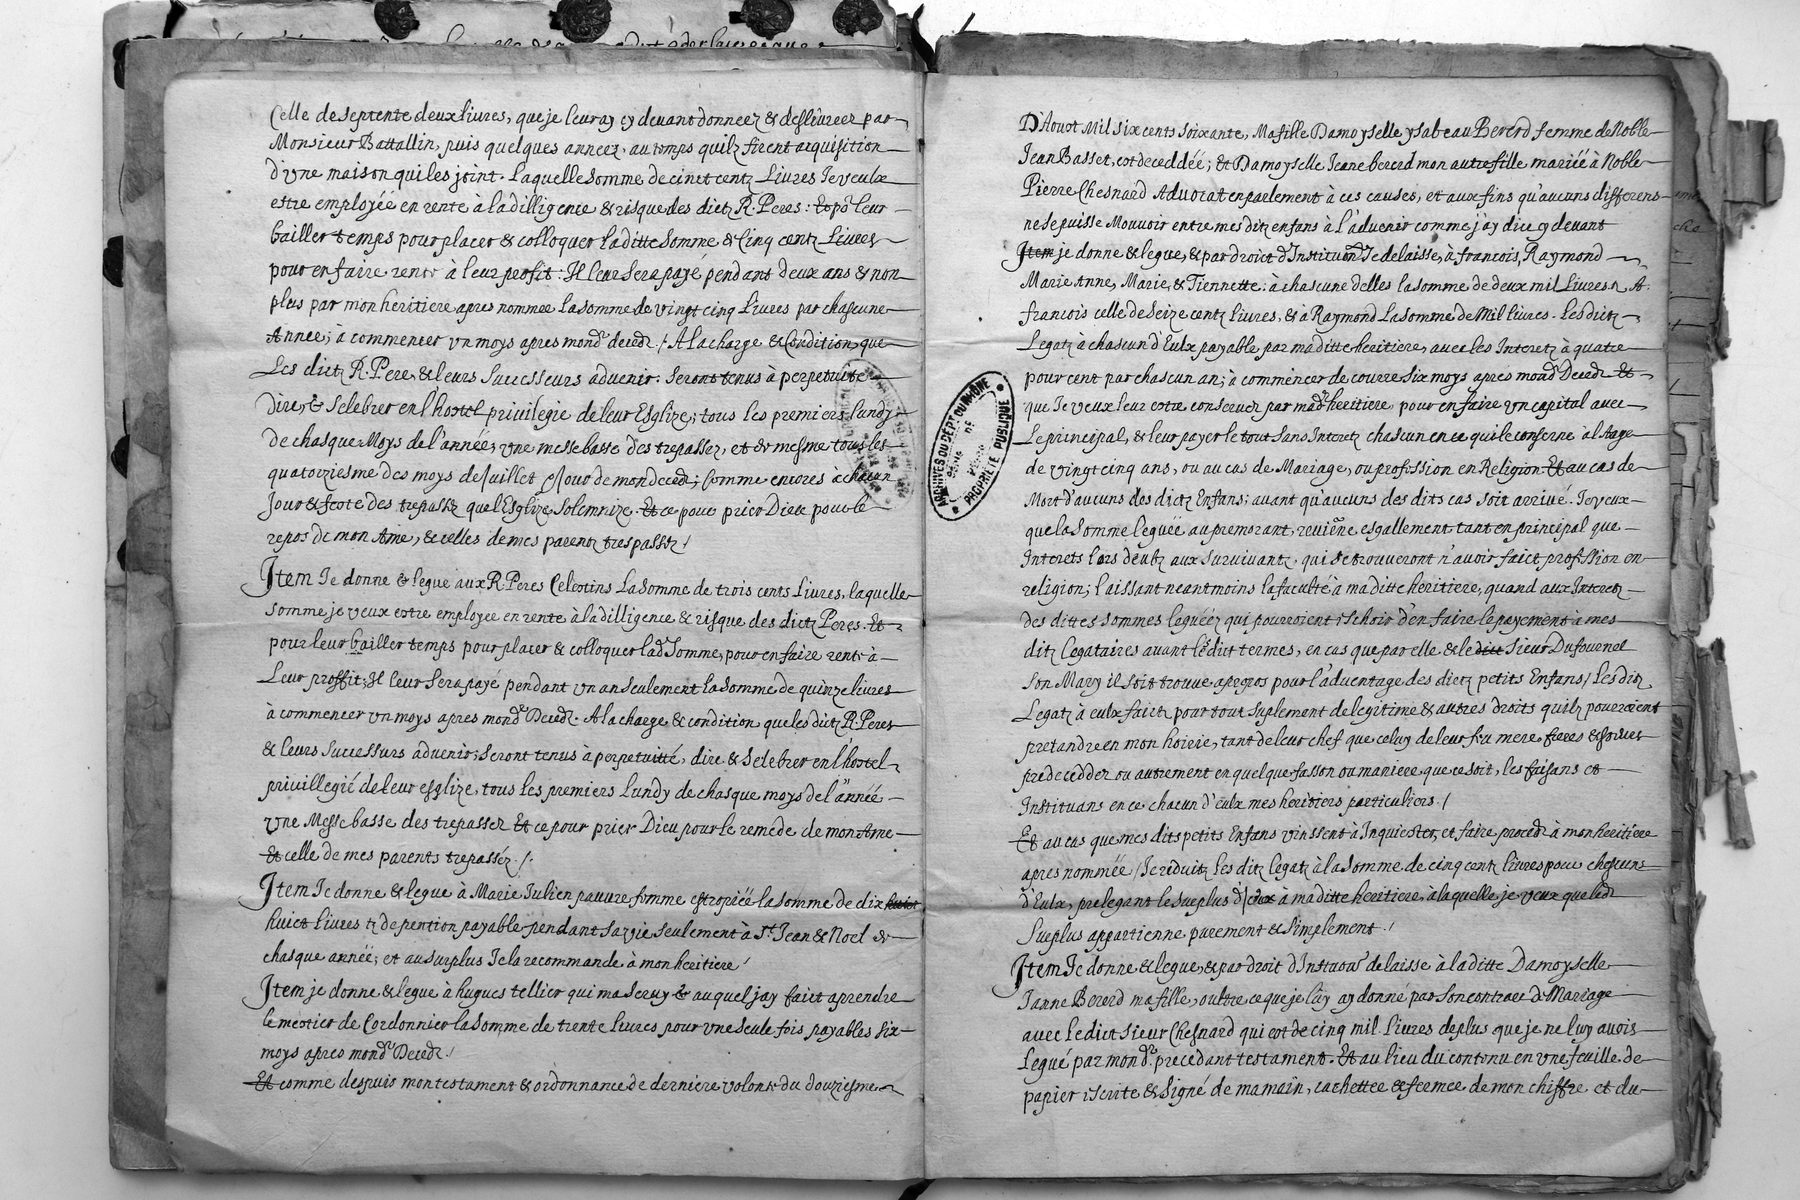 Celle de septente deux livres, que je leur ay cy devant donneez & deslivreez par
Monsieur Battallin, puis quelques anneez, au temps quilz firent acquisition
d'vne maison qui les joint. Laquelle somme de cinct centz Livres Je veulx
estre employéé en rente à la dilligence & risque des dictz R. Peres: Et po.r leur
bailler temps pour placer & colloquer laditte somme de Cinq centz Livres
pour en faire rente à leur profit: Il leur sera payé pendant deux ans & non
plus par mon heritiere apres nommée La somme de vingt cinq Livres par chascune
Année; à commencer vn moys apres mond.t decedz / A la charge & Condition que
Les dictz R. Pere, & leurs Successeurs advenir: seront tenus à perpetuité
dire, & Selebrer en l'hostel privilegié de leur Esglize; tous les premiers lundy
de chasque Moys de l'année, vne messe basse des trepassez, et de mesme tous les
quatorziesme des moys de Juillet Jour de mon decedz; Comme encores à chacun
Jour & feste des trepassez que l'Esglize Solemnize. Et ce pour prier Dieu pour le
repos de mon Ame, & celles de mes parentz trespassez /
Item Je donne & legue aux R. Peres Celestins La somme de trois cents Livres, laquelle
somme je veux estre employée en rente à la dilligence & risque des dictz Peres. Et
pour leur bailler temps pour placer & colloquer lad. Somme, pour en faire rente à
Leur proffit; Il leur Sera payé pendant vn an seulement la somme de quinze livres
à commencer vn moys apres mond.t Decedz. A la charge & condition que les dictz R. Peres
& leurs Successurs advenir; seront tenus à perpetuitté, dire & Selebrer en l'hostel
privillegié de leur esglize, tous les premiers Lundy de chasque moys de l'année
vne Messe basse des trepassez Et ce pour prier Dieu pour le remede de mon Ame
Et celle de mes parents trepasséz /.
Item Je donne & legue à Marie Julien pauvre femme estropiéé la somme de dix huict
huict livres tz de pention payable pendant sa vie seulement à St. Jean & Noel de
chasque année; et au surplus Je la recommande à mon heritiere /
Item je donne & legue à hugues tellier qui ma servy & auquel jay faict aprendre
le mestier de Cordonnier la somme de trente livres pour vne seule fois payables six
moys apres mond.t Decedz /
Et comme despuis mon testament & ordonnance de derniere volonté du douziesme
D'Aoust Mil six cents soixante, Ma fille Damoyselle ysabeau Bererd femme de Noble
Jean Basset, est deceddéé; & Damoyselle Jeane bererd mon autre fille mariéé à Noble
Pierre Chesnard Advocat en parlement à ces causes, et aux fins qu'aucuns differens
ne se puisse Mouvoir entre mes ditz enfans à l'advenir comme j'ay dit cy devant
Item je donne & legue, & par droict d'Institution Je delaisse, à francois, Raymond
Marie Anne, Marie, & Tiennette: à chascune d'elles la somme de deux mil Livres, A
francois celle de seize centz Livres, & à Raymond La somme de Mil livres. Lesdictz
Legatz à chascun d'Eulx payable par maditte heritiere, avec les Interetz à quatre
pour cent par chascun an; à commencer de courre six moys apres mond.t Decedz Et
que Je veux leur estre conservez par mad.te heritiere, pour en faire vn capital avec
Le principal, & leur payer le tout sans Interetz chascun en ce qui le conserne à l'Aage
de vingt cinq ans, ou au cas de Mariage, ou profession en Religion. Et au cas de
Mort d'aucuns des dictz Enfans; avant qu'aucuns des dits cas soit arrivé. Je veux
que la Somme leguée au premorant, reviéne esgallement tant en principal que
Interets lors d'eulz aux survivantz, qui se trouveront n'avoir faict profession en
religion; laissant neantmoins la faculté à maditte heritiere, quand aux Interetz
des dittes sommes leguééz qui pourroient eschoir d'en faire le payement à mes
ditz Legataires avant lesdict termes, en cas que par elle & le dict sieur Dufournel
son Mary il soit trouve apropos pour l'adventage des dictz petits Enfans / Lesditz
Legatz à eulx faictz pour tout suplement de legitime & autres droits quilz pourroient
pretandre en mon hoirie, tant de leur chef que celuy de leur feu mere, freres & soeurs
predecedder ou autrement en quelque fasson ou maniere que ce soit, les faisans et
Instituans en ce chacun d'eulx mes heritiers particuliers /
Et au cas que mes dits petits Enfans vinssent à Inquiester, et faire procedz à mon heritiere
apres nommée / Je reduitz Les ditz Legatz à la somme de cinq centz livres pour chescuns
d'Eulx, prelegant le surplus d'iceux à maditte heritiere, à laquelle je veux que ledz
Surplus appartienne purement & simplement /
Item Je donne & legue, & par droit d'Institu.on delaisse à la ditte Damoyselle
Janne Bererd ma fille, oultre ce que je luy ay donné par son contract de Mariage
avec le dict sieur Chesnard qui est de cinq mil Livres de plus que je ne luy avois
Legué par mon d.t precedant testament. Et au lieu du contenu en vne feuille de
papier escrite & signé de ma main, cachettee & fermee de mon chiffre et du
ARCHIVES DU DÉPT DU RHÔNE
PROPRIÉTÉ PUBLIQUE